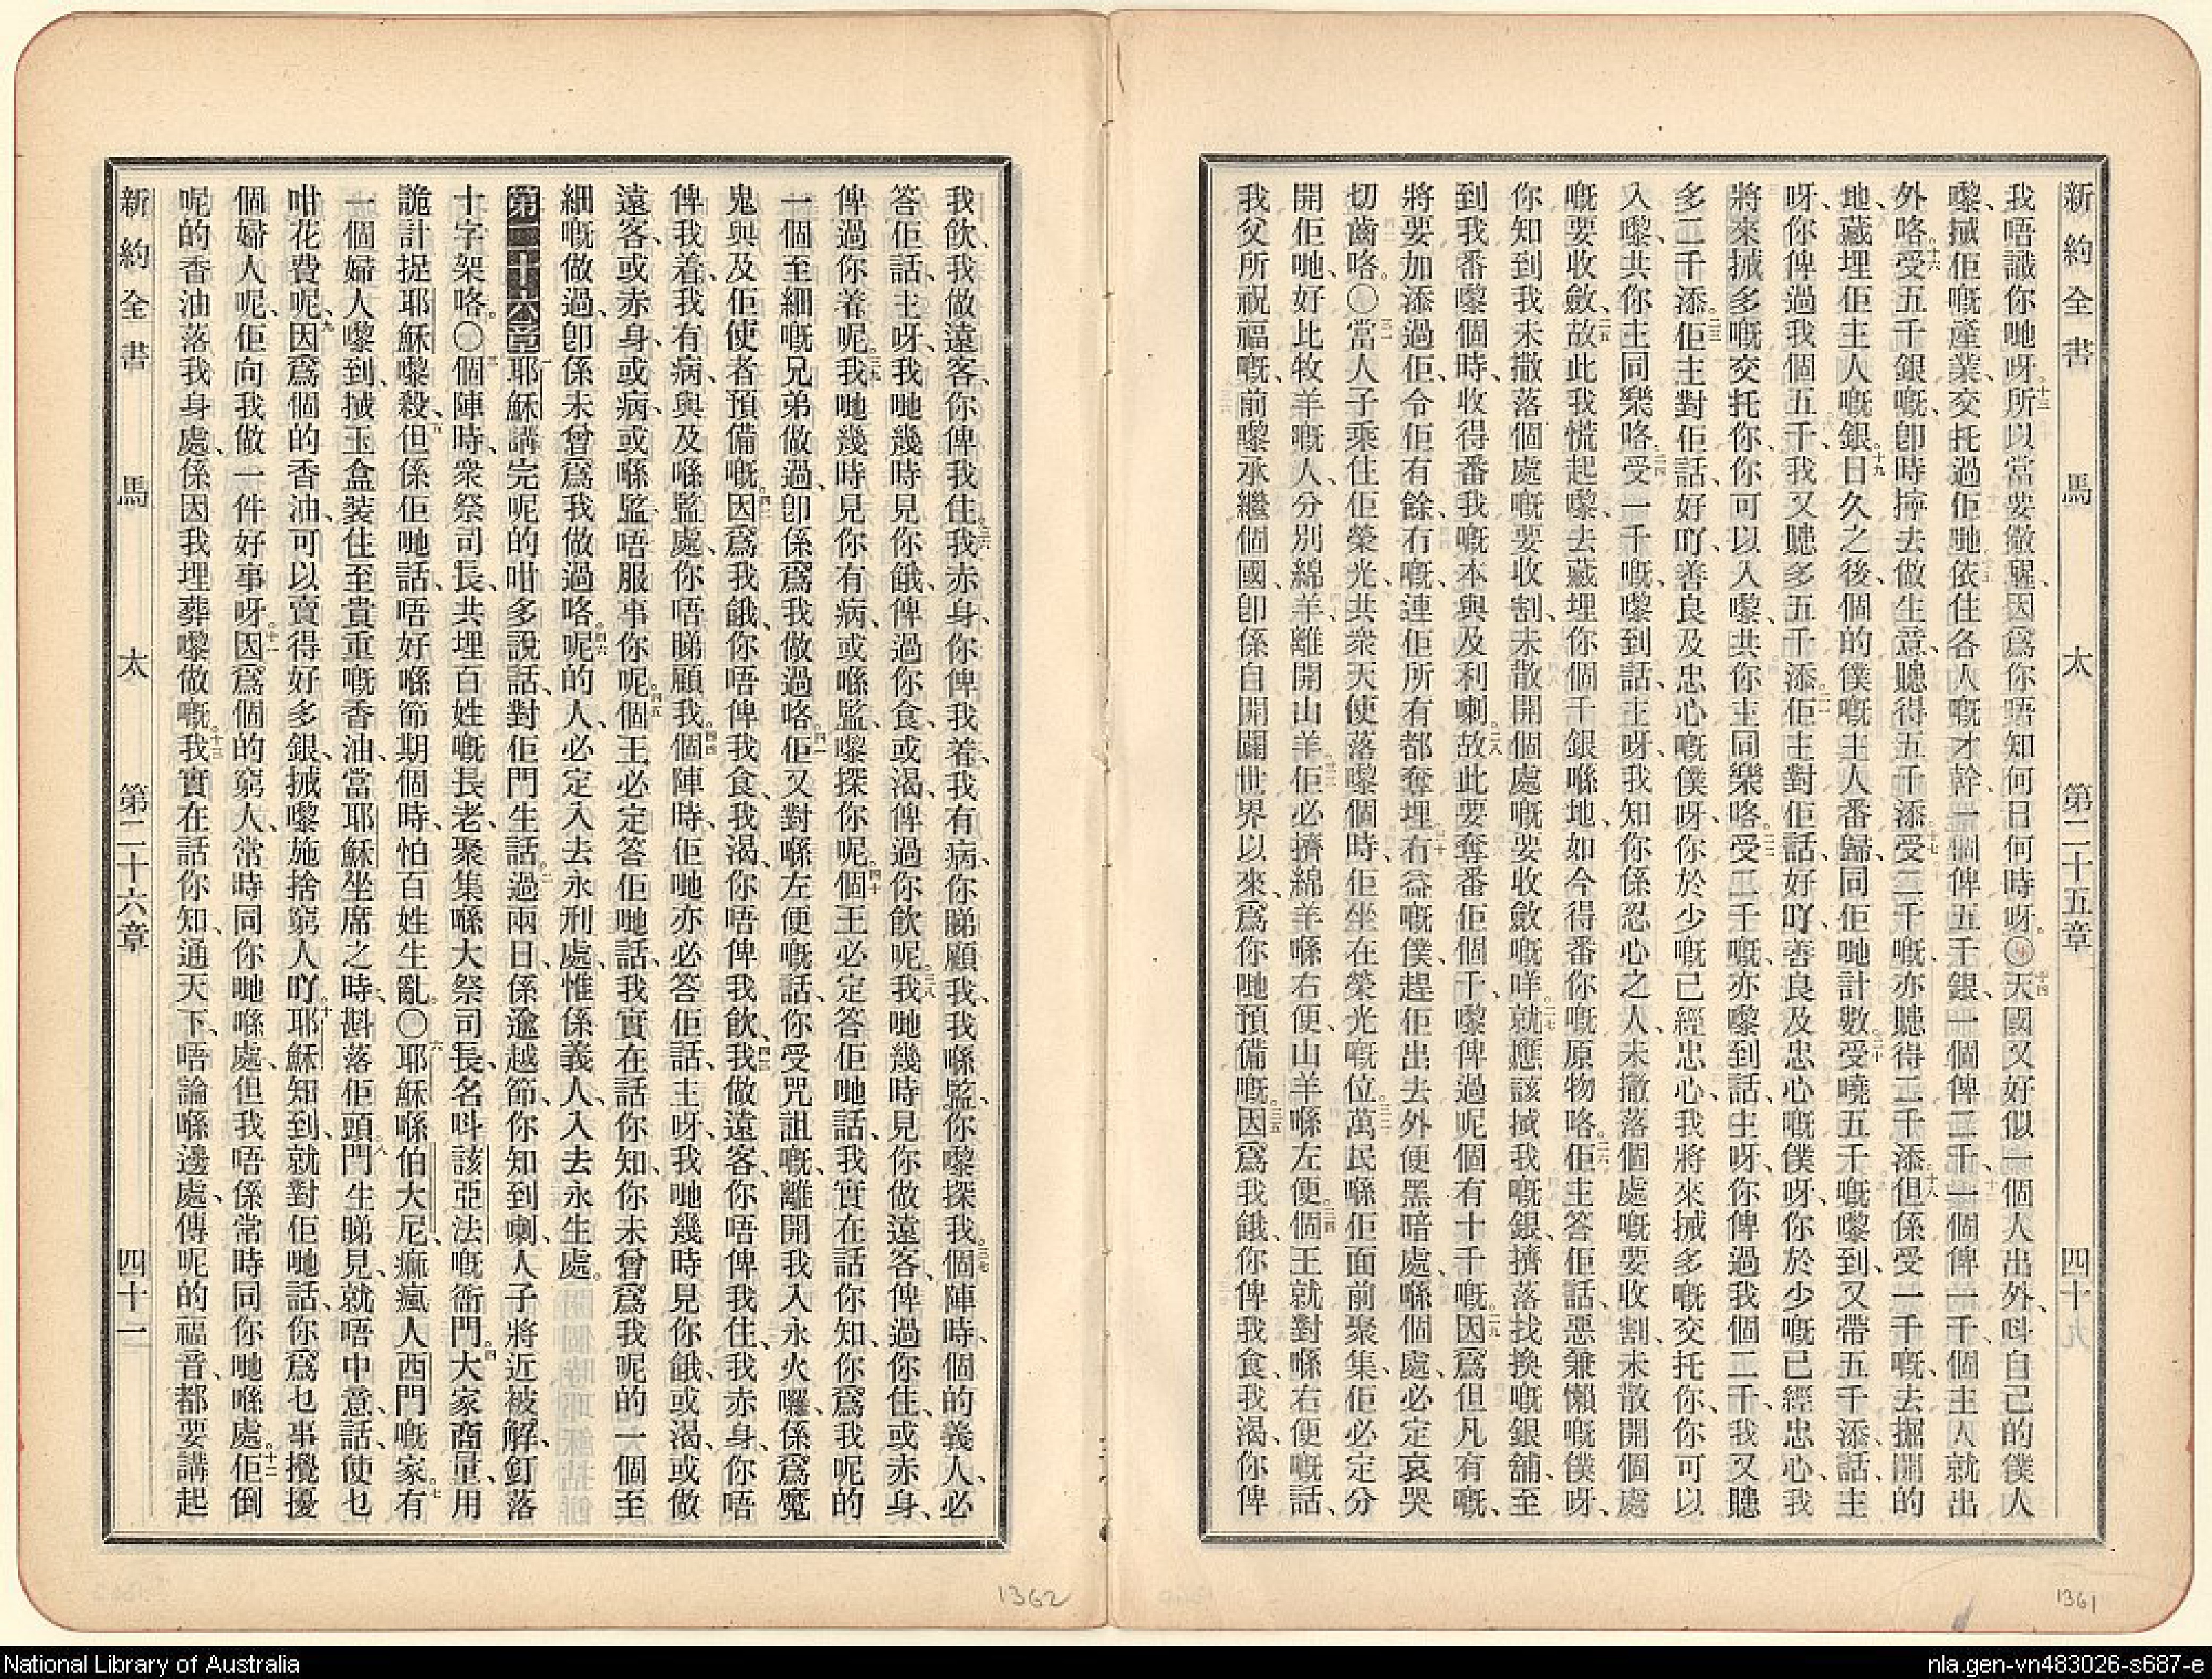 新約全書 馬太 第二十五章 四十九
我唔識你哋呀、所以當要儆醒、因爲你唔知何日何時呀。〇天國又好似一個人出外、呌自己的僕人
嚟、搣佢嘅產業、交托過佢哋、依住各人嘅才幹、一個俾五千銀、一個俾二千、一個俾一千、個主人就出
外咯。受五千銀嘅、卽時擰去做生意、聽得五千添、受二千嘅、亦聽得二千添、但係受一千嘅、去掘開的
地、藏埋佢主人嘅銀。日久之後、個的僕嘅主人番歸、同佢哋計數。受曉五千嘅嚟到、又帶五千添、話、主
呀、你俾過我個五千、我又聽多五千添。佢主對佢話、好吖、善良及忠心嘅僕呀、你於少嘅已經忠心、我
將來搣多嘅交托你、你可以入嚟、共你主同樂咯。受二千嘅、亦嚟到話、主呀、你俾過我個二千、我又聽
多二千添。佢主對佢話、好吖、善良及忠心嘅僕呀、你於少嘅已經忠心、我將來搣多嘅交托你、你可以
入嚟、共你主同樂咯。受一千嘅、嚟到話、主呀、我知你係忍心之人、未撒落個處嘅要收割、未散開個處
嘅要收斂、故此我慌起嚟、去藏埋你個千銀喺地、如今得番你嘅原物咯。佢主答佢話、惡兼懶嘅僕呀、
你知到我未撒落個處嘅要收割、未散開個處嘅要收斂嘅咩。就應該搣我嘅銀、擠落找換嘅銀舖、至
到我番嚟個時、收得番我嘅本與及利喇。故此要奪番佢個千、嚟俾過呢個有十千嘅。因爲但凡有嘅、
將要加添過佢、令佢有餘、冇嘅、連佢所有都奪埋。冇益嘅僕、趕佢出去外便黑暗處、喺個處必定哀哭
切齒咯。〇當人子乘住佢榮光、共衆天使落嚟個時、佢坐在榮光嘅位。萬民喺佢面前聚集、佢必定分
開佢哋、好比牧羊嘅人、分別綿羊、離開山羊。佢必擠綿羊喺右便、山羊喺左便。個王就對喺右便嘅話、
我父所祝福嘅、前嚟承繼個國、卽係自開闢世界以來、爲你哋預備嘅。因爲我餓、你俾我食、我渴、你俾
我飲、我做遠客、你俾我住、我赤身、你俾我着、我有病、你睇顧我、我喺監、你嚟探我。個陣時、個的義人、必
答佢話、主呀、我哋幾時見你餓、俾過你食、或渴、俾過你飲呢。我哋幾時見你做遠客、俾過你住、或赤身、
俾過你着呢。我哋幾時見你有病、或喺監、嚟探你呢。個王必定答佢哋話、我實在話你知、你爲我呢的
一個至細嘅兄弟做過、卽係爲我做過咯。佢又對喺左便嘅話、你受咒詛嘅、離開我入永火囉、係爲魔
鬼與及佢使者預備嘅。因爲我餓、你唔俾我食、我渴、你唔俾我飲、我做遠客、你唔俾我住、我赤身、你唔
俾我着、我有病、與及喺監處、你唔睇顧我。個陣時、佢哋亦必答佢話、主呀、我哋幾時見你餓、或渴、或做
遠客、或赤身、或病、或喺監、唔服事你呢。個王必定答佢哋話、我實在話你知、你未曾爲我呢的一個至
細嘅做過、卽係未曾爲我做過咯。呢的人、必定入去永刑處、惟係義人、入去永生處。
第二十六章 耶穌講完呢的咁多說話、對佢門生話。過兩日、係逾越節、你知到喇、人子將近被解、釘落
十字架咯。〇個陣時、衆祭司長、共埋百姓嘅長老、聚集喺大祭司長、名呌該亞法嘅衙門。大家商量、用
詭計捉耶穌嚟殺、但係佢哋話、唔好喺節期個時、怕百姓生亂。〇耶穌喺伯大尼痲瘋人西門嘅家。有
一個婦人嚟到、搣玉盒裝住至貴重嘅香油、當耶穌坐席之時、斟落佢頭。門生睇見、就唔中意、話、使乜
咁花費呢、因爲個的香油、可以賣得好多銀、搣嚟施捨窮人吖。耶穌知到、就對佢哋話、你爲乜事攪擾
個婦人呢、佢向我做一件好事呀。因爲個的窮人、常時同你哋喺處、但我唔係常時同你哋喺處。佢倒
呢的香油落我身處、係因我埋葬嚟做嘅。我實在話你知、通天下、唔論喺邊處、傳呢的福音、都要講起
新約全書 馬太 第二十六章 四十一
1362
1361
National Library of Australia
nla.gen-vn483026-s687-e